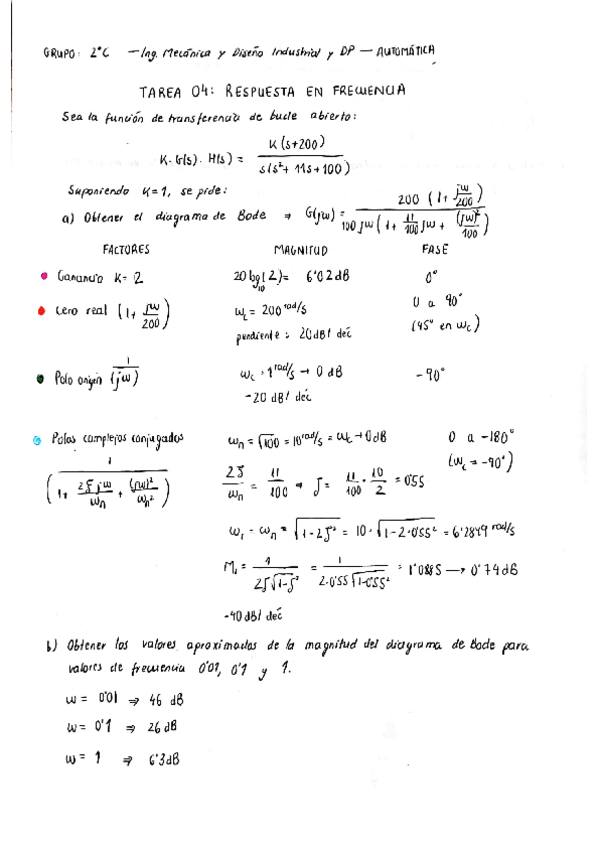 GRUPO: 2ºC — Ing. Mecánica y Diseño Industrial y DP — AUTOMÁTICA
TAREA 04: RESPUESTA EN FRECUENCIA
Sea la función de transferencia de bucle abierto:
K·G(s)·H(s) = K(s+200) / s(s²+ 11s+100)
Suponiendo K=1, se pide:
a) Obtener el diagrama de Bode ⇒ G(jω) = 200 (1+ jω/200) / 100 jω (1+ 11/100 jω + (jω)²/100)
FACTORES MAGNITUD FASE
Ganancia K= 2 20 log₁₀(2)= 6'02 dB 0°
Cero real (1+ jω/200) ωc = 200 rad/s 0 a 90°
pendiente: 20dB/dec (45° en ωc)
Polo origen 1/(jω) ωc = 1 rad/s → 0 dB -90°
-20 dB/dec
Polos complejos conjugados ωn = √100 = 10 rad/s = ωc → 0dB 0 a -180°
1/(1+ 2ζjω/ωn + (jω)²/ωn²) 2ζ/ωn = 11/100 ⇒ ζ = 11/100 · 10/2 = 0'55 (ωc = -90°)
ωr = ωn = √1-2ζ² = 10·√1-2·0'55² = 6'2849 rad/s
Mr = 1/2ζ√1-ζ² = 1/2·0'55√1-0'55² = 1'0885 → 0'74 dB
-40dB/dec
b) Obtener los valores aproximados de la magnitud del diagrama de Bode para
valores de frecuencia 0'01, 0'1 y 1.
ω = 0'01 ⇒ 46 dB
ω = 0'1 ⇒ 26 dB
ω = 1 ⇒ 6'3dB